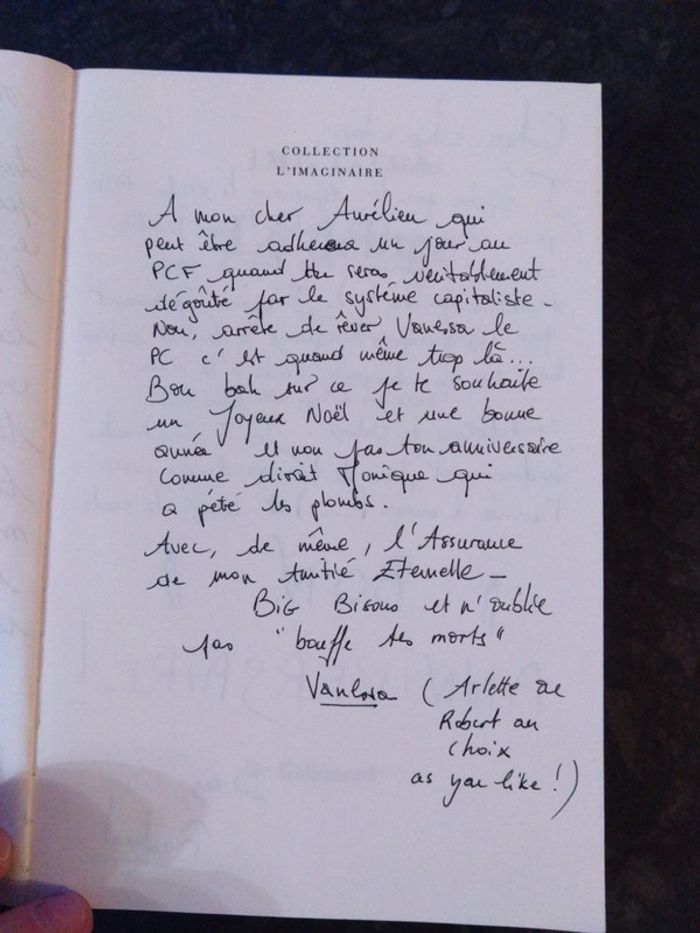 COLLECTION
L'IMAGINAIRE
A mon cher Aurélien qui
peut être adherera un jour au
PCF quand tu seras véritablement
dégoûté par le système capitaliste -
Non, arrête de rêver Vanessa le
PC c'est quand même trop là...
Bon bah sur ce je te souhaite
un Joyeux Noël et une bonne
année et non pas ton anniversaire
comme dirait Monique qui
a pété les plombs.
Avec, de même, l'Assurance
de mon Amitié Eternelle -
BiG Bisous et n'oublie
pas "bouffe tes morts"
Vanessa (Arlette ou
Robert au
choix
as you like !)